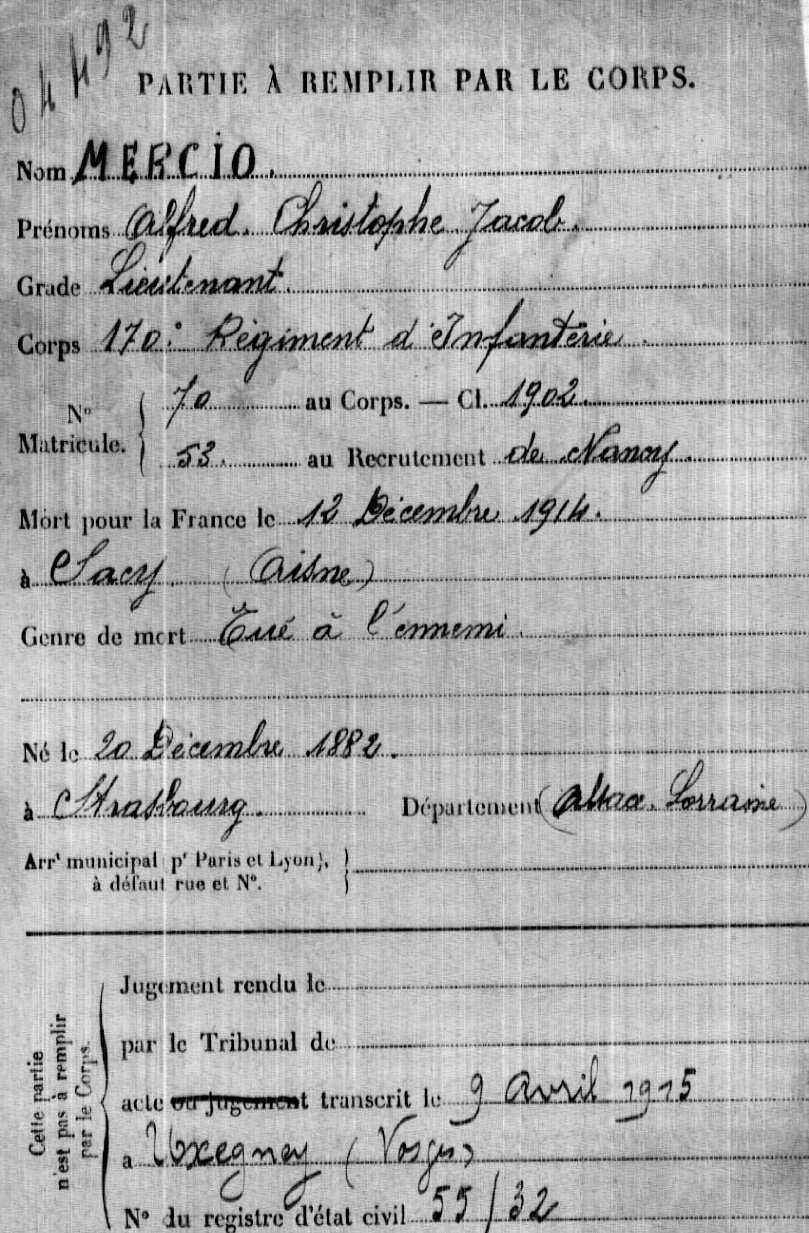 04492
PARTIE À REMPLIR PAR LE CORPS.
Nom MERCIO.
Prénoms Alfred. Christophe Jacob.
Grade Lieutenant.
Corps 170e Régiment d'Infanterie.
N° Matricule. { 70 au Corps. — Cl. 1902.
53. au Recrutement de Nancy.
Mort pour la France le 12 Décembre 1914.
à Sacy. (Aisne)
Genre de mort Tué à l'ennemi.
Né le 20 Décembre 1882.
à Strasbourg. Département (Alsace. Lorraine)
Arrt municipal pr Paris et Lyon), }
à défaut rue et N°. }
Cette partie
n'est pas à remplir
par le Corps.
Jugement rendu le
par le Tribunal de
acte ou jugement transcrit le 9 Avril 1915
a Uxegney (Vosges)
N° du registre d'état civil 55/32